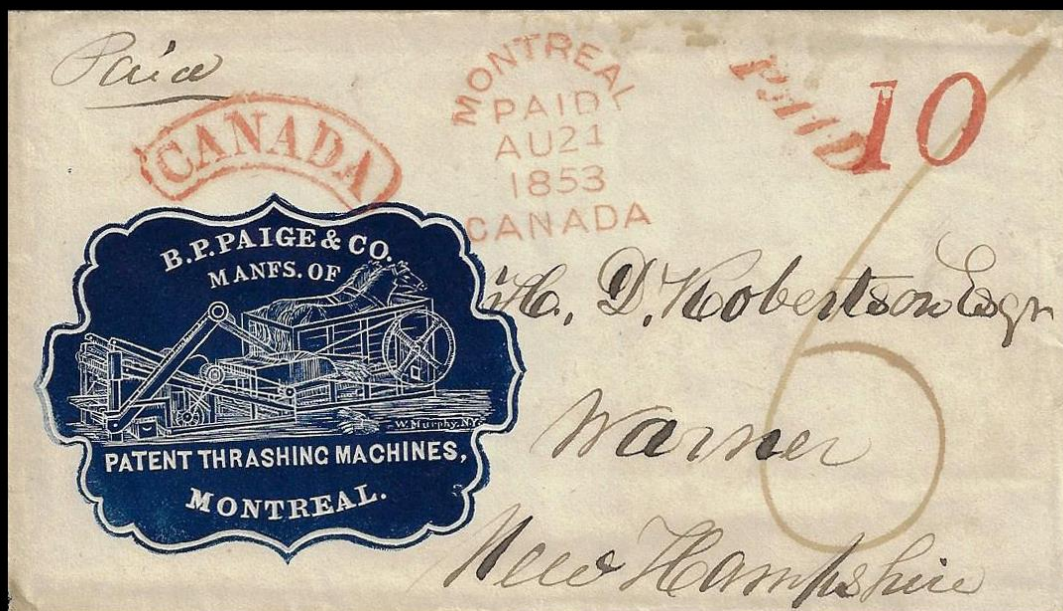 Paid
CANADA
MONTREAL
PAID
AU 24
1853
CANADA
PAID
10
6
B.P. PAIGE & CO.
MANFS. OF
W. Murphy. N.Y.
PATENT THRASHING MACHINES,
MONTREAL.
H. D. Robertson Esqr
Warner
New Hampshire